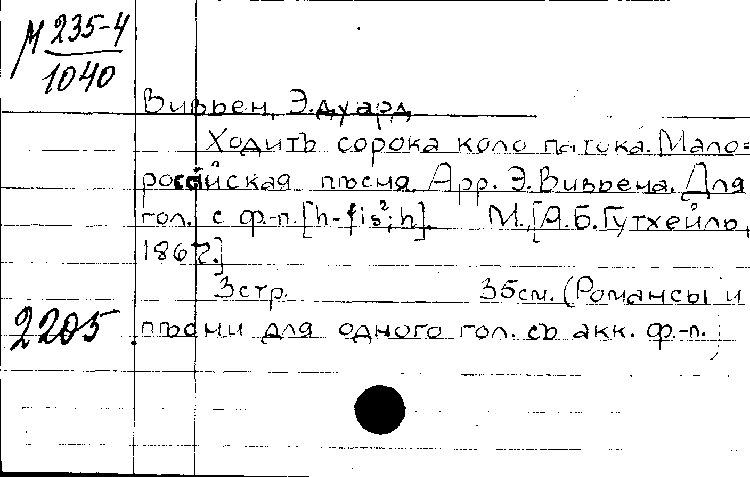 М 235-4
1040
Вивьен, Эдуард
Ходитъ сорока коло потока. Мало=
российская пѣсня. Арр. Э. Вивьена. Для
гол. с ф-п. [h-fis²; h]. М., [А.Б. Гутхейль,
186?.]
3 стр. 35 см. (Романсы и
2205 пѣсни для одного гол. съ акк. ф.-п.